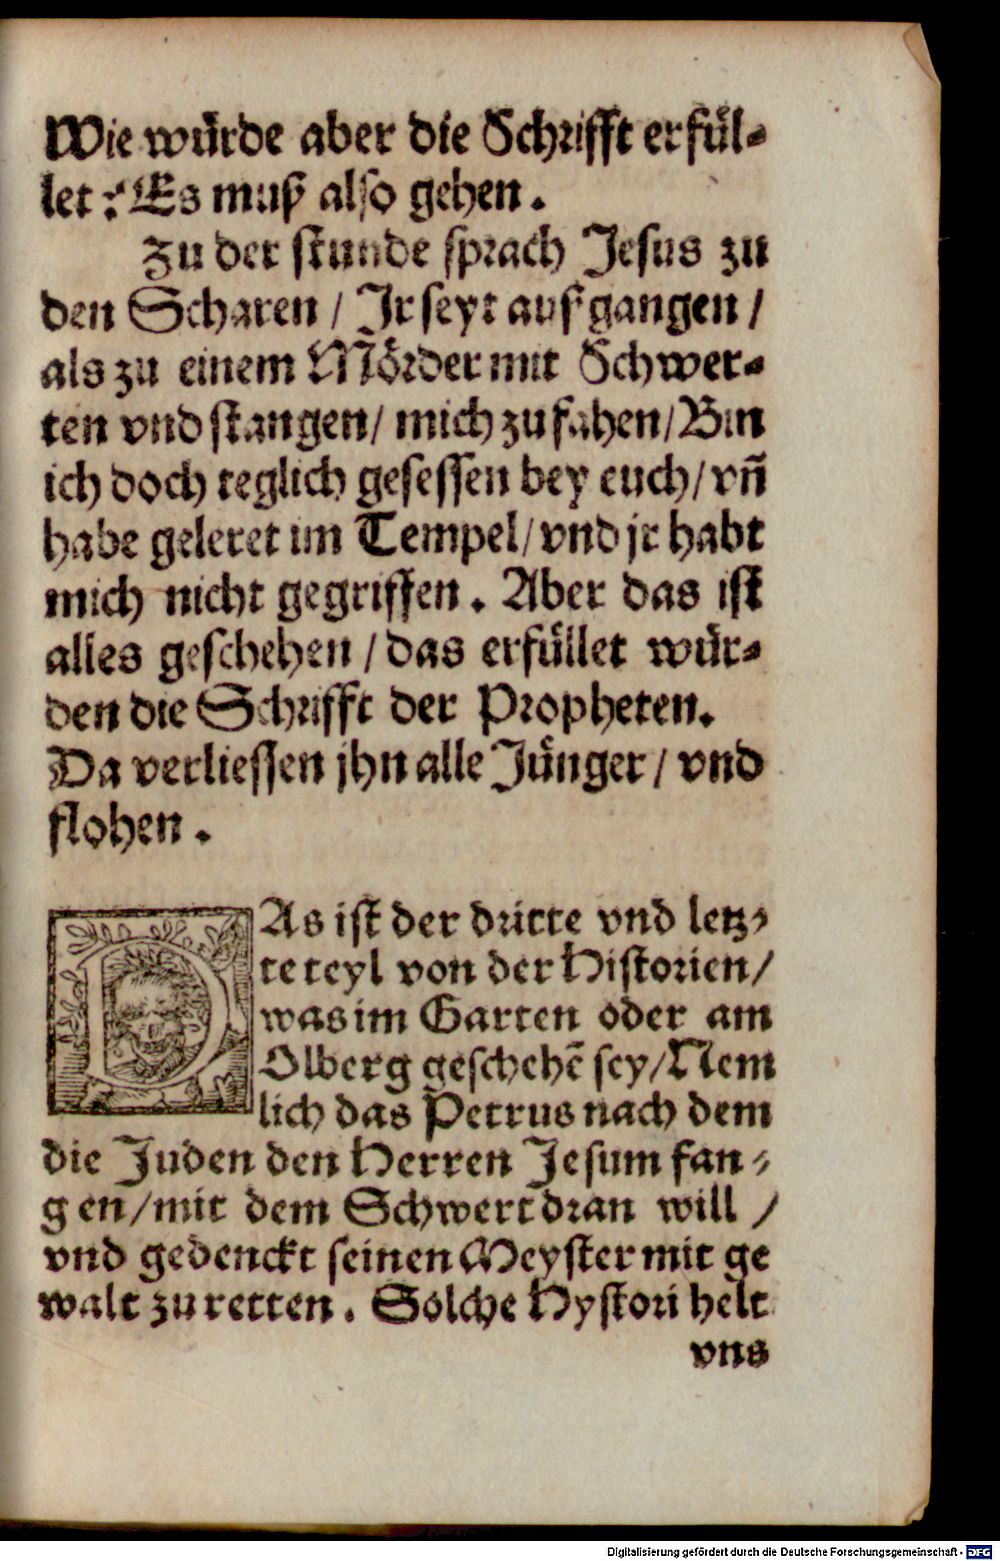 Wie würde aber die Schrifft erfül⸗
let? Es muß also gehen.
Zu der stunde sprach Jesus zu
den Scharen / Ir seyt ausgangen /
als zu einem Mörder mit Schwer⸗
ten vnd stangen / mich zu fahen / Bin
ich doch teglich gesessen bey euch / vñ
habe geleret im Tempel / vnd jr habt
mich nicht gegriffen. Aber das ist
alles geschehen / das erfüllet wür⸗
den die Schrifft der Propheten.
Da verliessen jhn alle Jünger / vnd
flohen.
DAs ist der dritte vnd letz⸗
te teyl von der Historien /
was im Garten oder am
Olberg geschehē sey / Nem
lich das Petrus nach dem
die Juden den Herren Jesum fan⸗
gen / mit dem Schwert dran will /
vnd gedenckt seinen Meyster mit ge
walt zu retten. Solche Hystori helt
vns
Digitalisierung gefördert durch die Deutsche Forschungsgemeinschaft - DFG